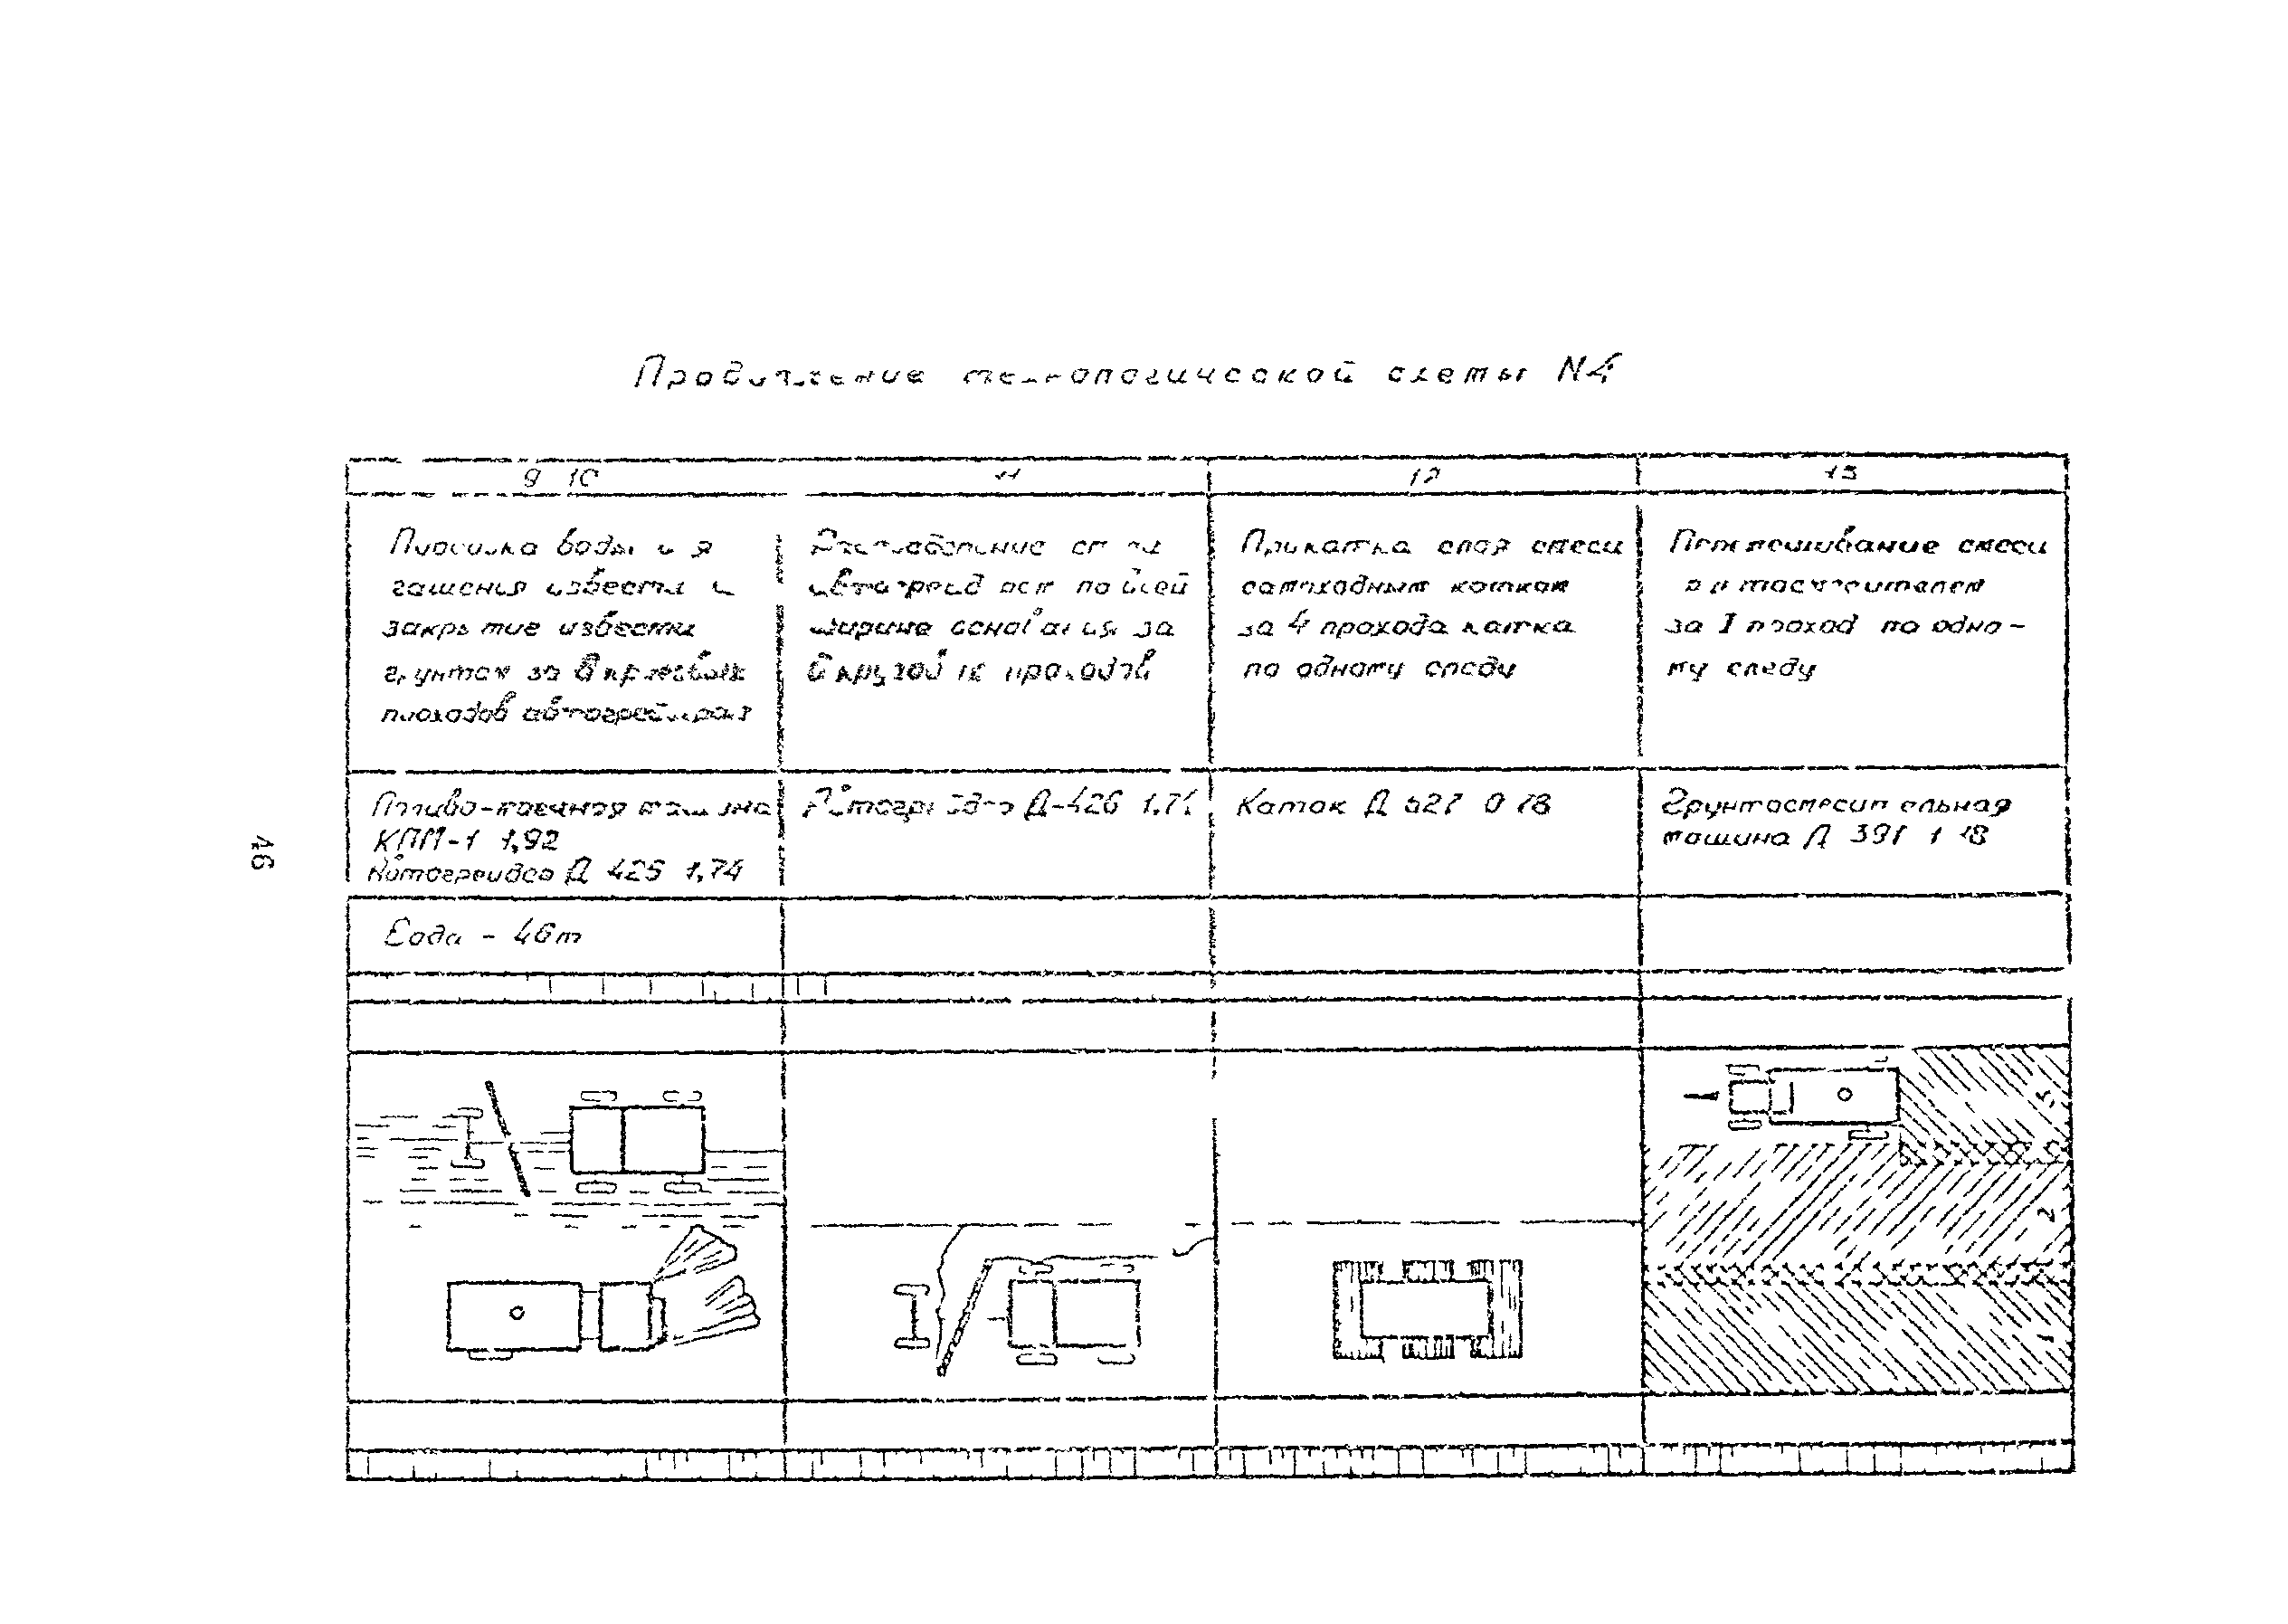 Продолжение технологической схемы N4
9 10
11
12
13
Поливка воды для
гашения извести и
закрытие извести
грунтом за 8 круговых
проходов автогрейдера
Распределение смеси
автогрейдером по всей
ширине основания за
круговых проходов
Прикатка слоя смеси
самоходным катком
за 4 прохода катка
по одному следу
Перемешивание смеси
за I проход по одно-
му следу
Поливо-моечная машина
КПМ-1 1,92
Автогрейдер Д 426 1,74
Автогрейдер Д-426 1,74
Каток Д 627 0 78
Грунтосмесительная
машина Д 391 1 18
Вода - 46т
46
3
2
1